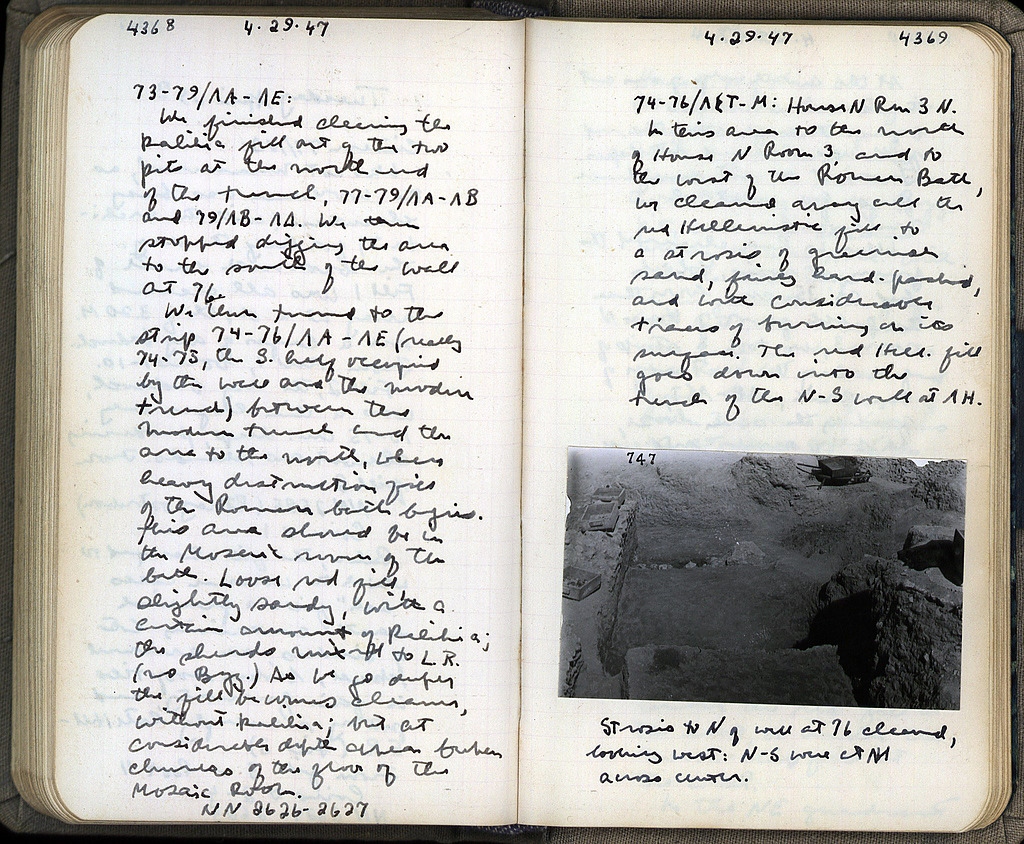 4368 4.29.47
73-79/ΛΑ-ΛΕ:
We finished clearing the
palihia fill out of the two
pits at the north end
of the trench, 77-79/ΛΑ-ΛΒ
and 79/ΛΒ-ΛΔ. We
stopped digging the area
to the south of the wall
at 76.
We then turned to the
strip 74-76/ΛΑ-ΛΕ (really
74-75, the S. half occupied
by the wall and the modern
trench) between the
modern trench and the
area to the north, where
heavy destruction fill
of the Roman bath begins.
This area should be in
the Mosaic room of the
bath. Loose red fill,
slightly sandy, with a
certain amount of Palihia;
the sherds mixed to L.R.
(no Byz.) As we go deeper
the fill becomes cleaner,
without palihia; but at
considerable depth appear broken
chunks of the floor of the
Mosaic Room.
NN 2626-2627
4.29.47 4369
74-76/ΛΣΤ-Μ: House N Rm 3 N.
In this area to the north
of House N Room 3, and to
the west of the Roman Bath,
we cleared away all the
red Hellenistic fill to
a strosis of greenish
sand, fairly hard-packed,
and with considerable
traces of burning on its
surface. The red Hell. fill
goes down into the
trench of the N-S wall at ΛΗ.
747
Strosis to N of wall at 76 cleared,
looking west: N-S wall at ΛΗ
across center.